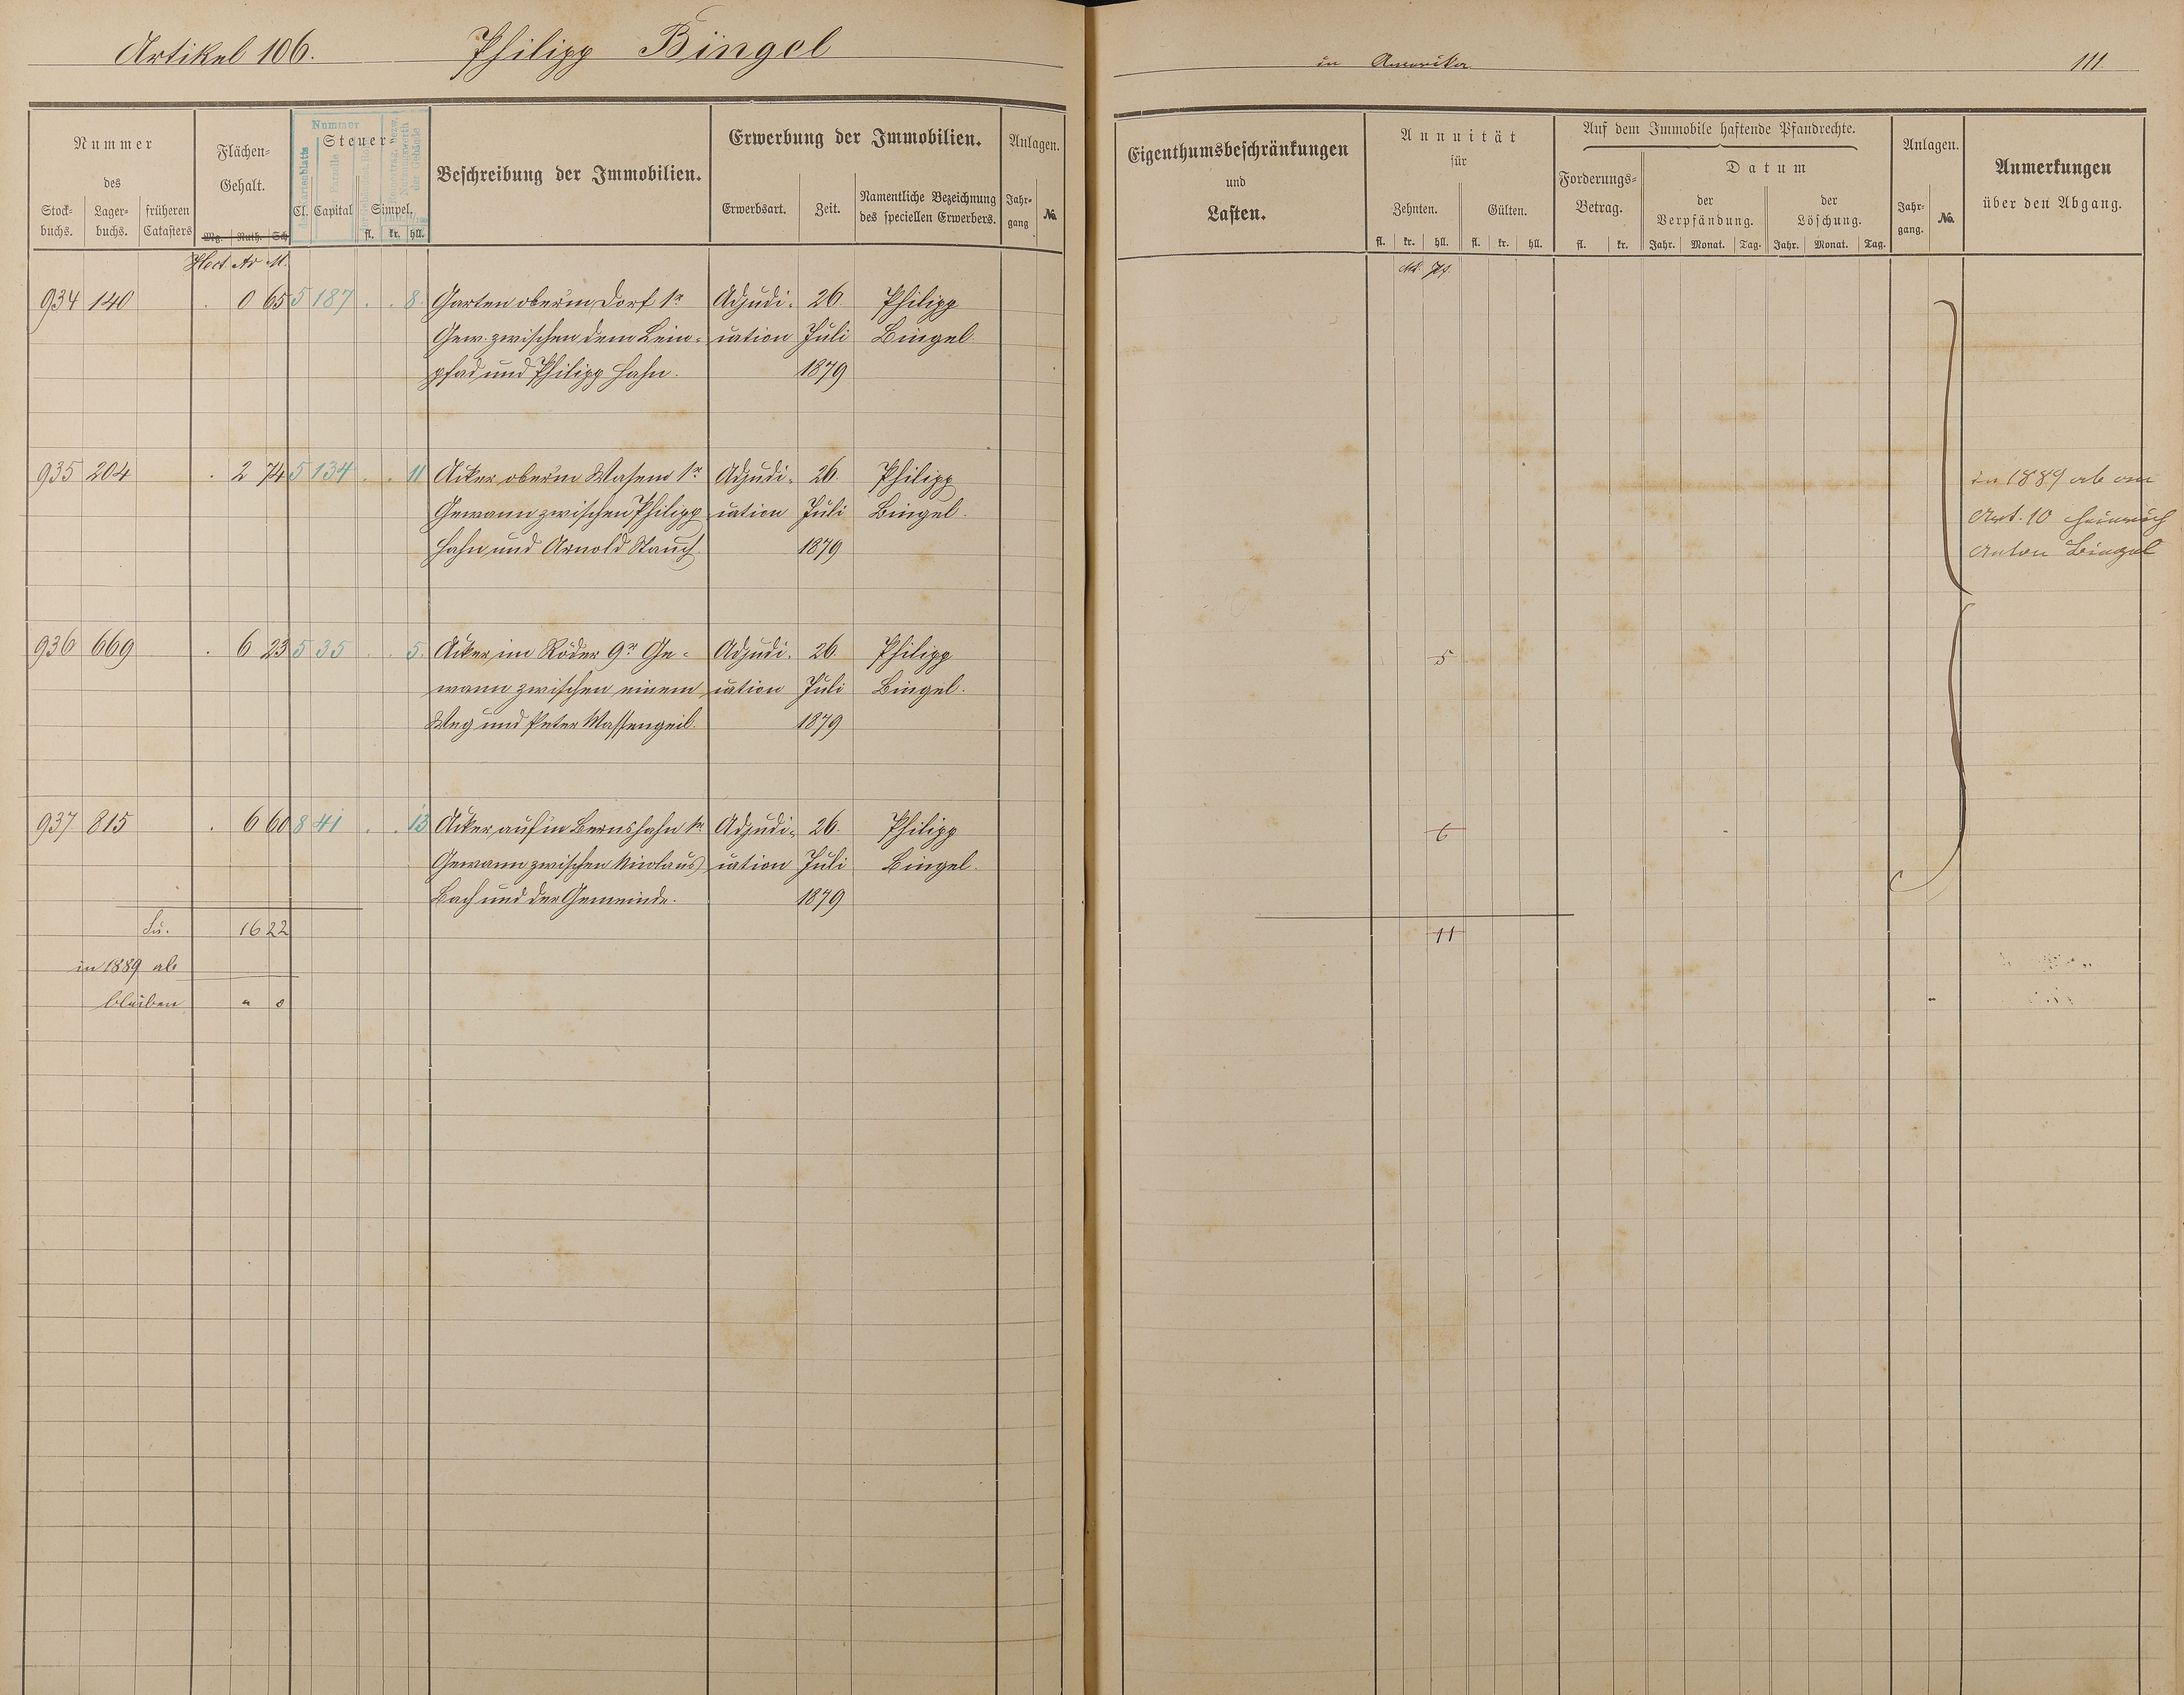 Artikel 106. Philipp Bingel
in Amerika 111.
Nummer
des
Stock-
buchs.
Lager-
buchs.
früheren
Catasters
Flächen-
Gehalt.
Mg. Ruth. Sch
Nummer
Steuer-
Cl. Capital Simpel.
fl. kr. hll.
Beschreibung der Immobilien.
Erwerbung der Immobilien.
Erwerbsart. Zeit.
Namentliche Bezeichnung
des speciellen Erwerbers.
Anlagen.
Jahr-
gang
No.
Hect Ar M.
934 140 . 0 65 5 187 . . 8. Garten ober'm Dorf 1r Adjudi- 26. Philipp
Gew. zwischen dem Lein- cation Juli Bingel.
pfad und Philipp Hahn. 1879
935 204 . 2 74 5 134 . . 11 Acker ober'm Wasem 1r Adjudi- 26. Philipp
Gewann zwischen Philipp cation Juli Bingel.
Hahn und Arnold Stauch. 1879
936 669 . 6 23 5 35 . . 5. Acker im Röder 9r Ge- Adjudi- 26. Philipp
wann zwischen einem cation Juli Bingel.
Weg und Peter Massengeil. 1879
937 815 . 6 60 8 41 . . 13 Acker auf'm Bernshahn 1r Adjudi- 26. Philipp
Gewann zwischen Nicolaus cation Juli Bingel.
Bach und der Gemeinde. 1879
Su. 16 22
in 1889 ab
bleiben " 0
Eigenthumsbeschränkungen
und
Lasten.
Annuität
für
Zehnten. Gülten.
fl. kr. hll. fl. kr. hll.
Auf dem Immobile haftende Pfandrechte.
Forderungs-
Betrag.
fl. kr.
Datum
der
Verpfändung.
der
Löschung.
Jahr. Monat. Tag. Jahr. Monat. Tag.
Anlagen.
Jahr-
gang.
No.
Anmerkungen
über den Abgang.
M. Pf.
in 1889 ab an
Art. 10 Heinrich
Anton Bingel
5
6
11